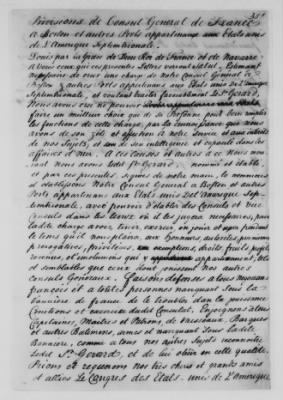 Provisions de Consul General de France
à Boston et autres Ports appartenans aux Etats unis
de L'Amerique Septentrionale.
Louis par la Grace de Dieu Roi de France et de Navarre
à tous ceux qui ces presentes Lettres verront Salut. Estimant
necessaire de creer une charge de notre Consul General à
Boston & autres Ports appartenans aux Etats unis de l'Amerique
Septentrionale, et voulant
Nous avons cru ne pouvoir
faire un meilleur choix que de sa Personne pour bien remplir
les fonctions de cette charge, par la connoissance que nous
avons de son zèle et affection à notre Service et aux interêts
de nos Sujets, et de son intelligence et capacité dans les
affaires et aux. A ces Causes et autres à ce Nous mouvant
Nous avons ledit Sr. Gerard nommé et établi,
et par ces presentes signées de notre main, le nommons
et établissons Notre Consul General à Boston et autres
Ports appartenans aux Etats unis de l'Amerique Sep-
tentrionale, avec pouvoir d'établir des Consuls et Vice
Consuls dans les lieux où il les jugera necessaires, pour
ladite charge avoir, tenir, exercer, en jouir et user pendant
le tems qu'il nous plaira aux honneurs, autorités, preeminences,
prerogatives, privileges, exemptions, droits, fruits, profits,
revenus, et émolumens qui y appartiennent, tels
et semblables que ceux dont jouissent nos autres
Consuls Generaux. Faisons defenses à tous Marchands
françois et à toutes personnes navigant sous la
banniere de france de le troubler dans la jouissance
fonctions et exercice dudit Consulat. Enjoignons à tous
Capitaines, Maitres et Patrons, de Vaisseaux, Barques
et autres Batimens, armés et navigant sous ladite
Banniere, comme à tous nos autres Sujets reconnoitre
ledit Sr. Gerard, et de lui obéir en cette qualité.
Prions et requerons nos très chers et grands amis
et alliés Le Congrès des Etats unis de l'Amerique